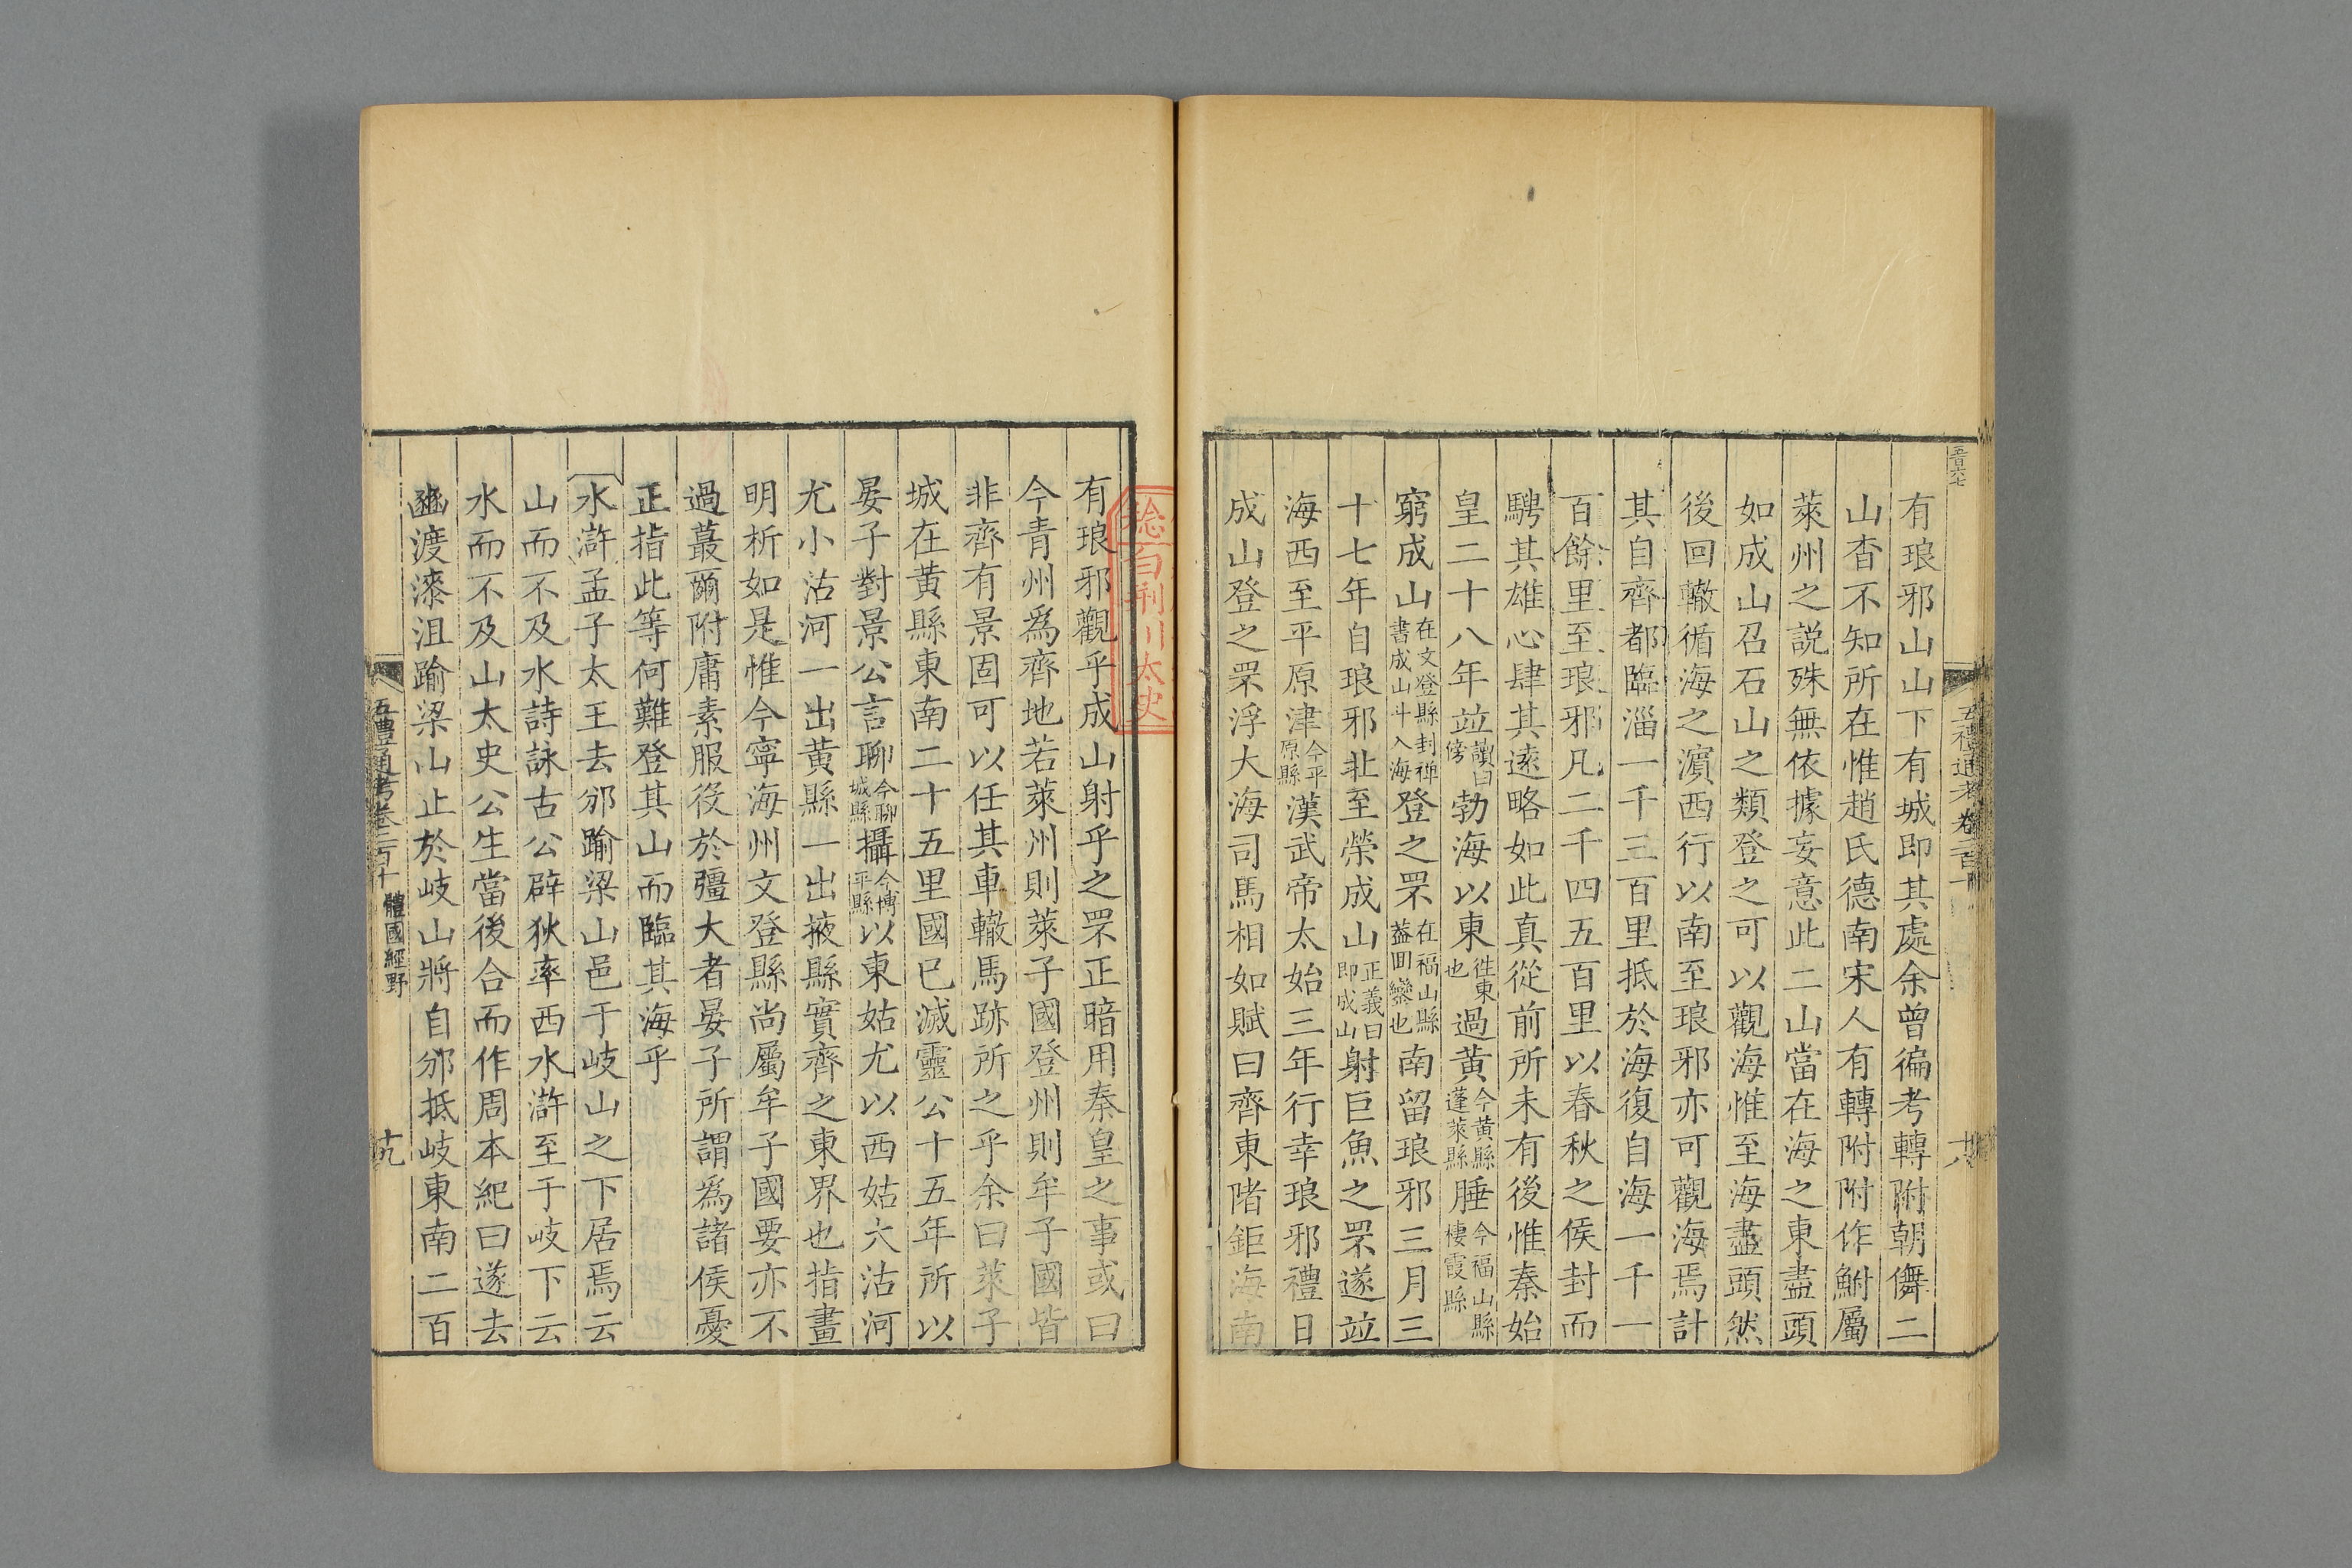 有琅邪山山下有城即其處余曾徧考轉附朝儛二
山杳不知所在惟趙氏德南宋人有轉附附作鮒屬
萊州之説殊無依據妄意此二山當在海之東盡頭
如成山召石山之類登之可以觀海惟至海盡頭然
後回轍循海之濵西行以南至琅邪亦可觀海焉計
其自齊都臨淄一千三百里抵於海復自海一千一
百餘里至琅邪凡二千四五百里以春秋之侯封而
騁其雄心肆其遠略如此真從前所未有後惟秦始
皇二十八年竝讀曰傍勃海以東徃東也過黄今黄縣蓬萊縣腄今福山縣棲霞縣
窮成山在文登縣封禅書成山斗入海登之罘在福山縣葢囬繞也南留琅邪三月三
十七年自琅邪北至榮成山正義曰即成山射巨魚之罘遂竝
海西至平原津今平原縣漢武帝太始三年行幸琅邪禮日
成山登之罘浮大海司馬相如賦曰齊東陼鉅海南
有琅邪觀乎成山射乎之罘正暗用秦皇之事或曰
今青州爲齊地若萊州則萊子國登州則牟子國皆
非齊有景固可以任其車轍馬跡所之乎余曰萊子
城在黄縣東南二十五里國已滅靈公十五年所以
晏子對景公言聊今聊城縣攝今博平縣以東姑尤以西姑大沽河
尤小沽河一出黄縣一出掖縣實齊之東界也指畫
明析如是惟今寧海州文登縣尚屬牟子國要亦不
過蕞爾附庸素服役於彊大者晏子所謂爲諸侯憂
正指此等何難登其山而臨其海乎
水滸孟子太王去邠踰梁山邑于岐山之下居焉云
山而不及水詩詠古公辟狄率西水滸至于岐下云
水而不及山太史公生當後合而作周本紀曰遂去
豳渡漆沮踰梁山止於岐山將自邠抵岐東南二百
五禮通考卷二百十 體國經野
十九